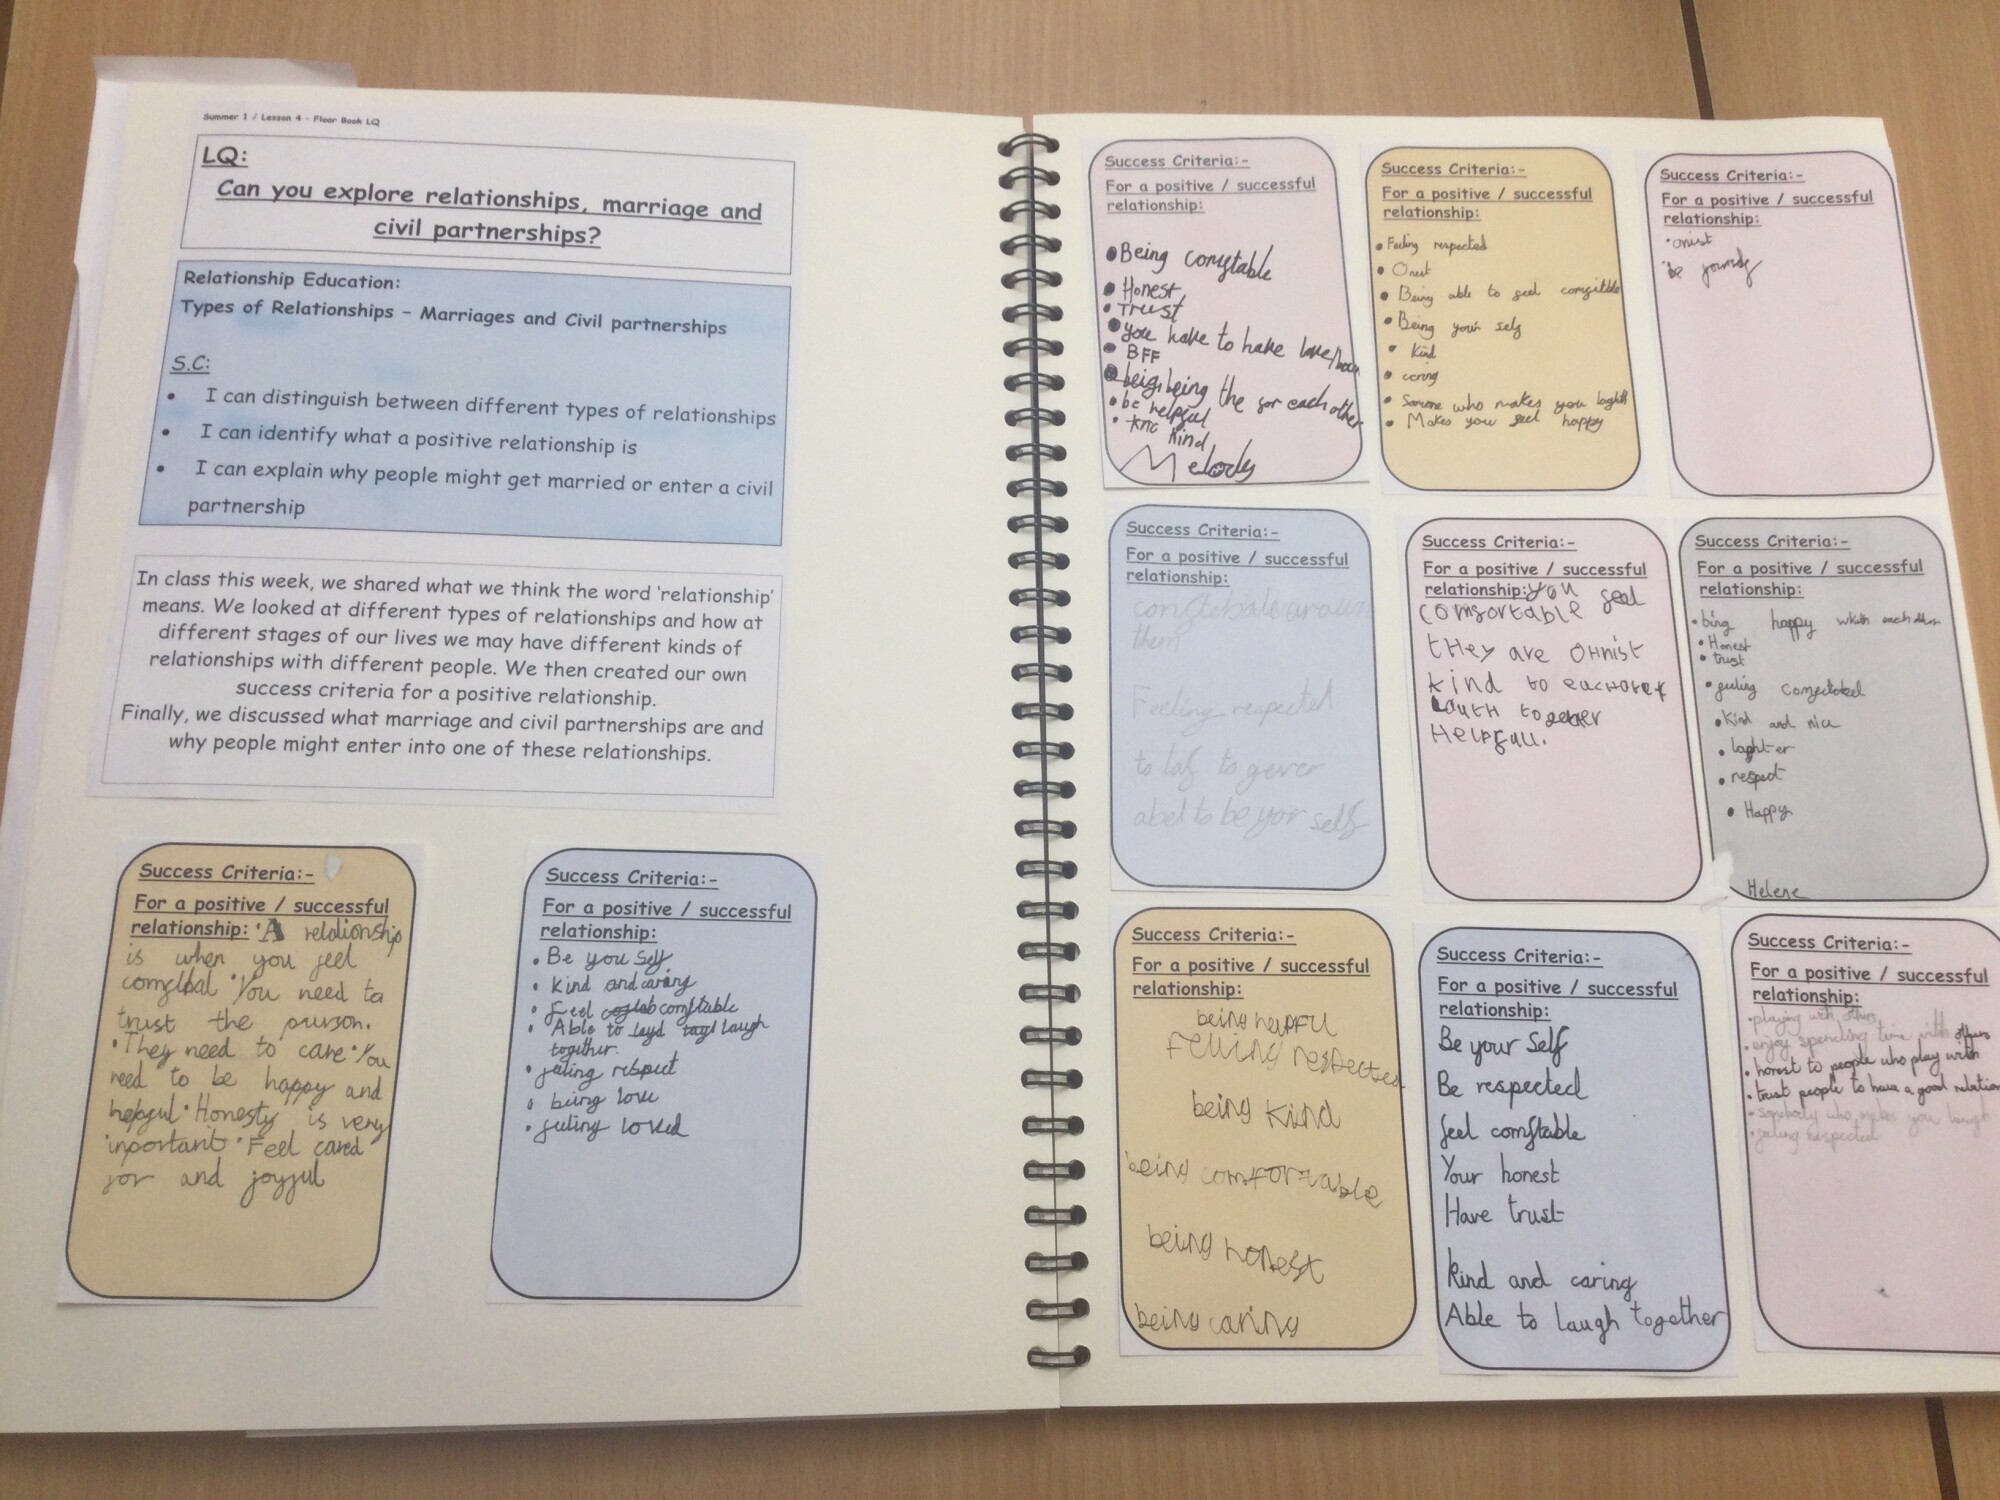 Summer 1 / Lesson 4 - Floor Book LQ
LQ:
Can you explore relationships, marriage and
civil partnerships?
Relationship Education:
Types of Relationships – Marriages and Civil partnerships
S.C:
• I can distinguish between different types of relationships
• I can identify what a positive relationship is
• I can explain why people might get married or enter a civil
partnership
In class this week, we shared what we think the word 'relationship'
means. We looked at different types of relationships and how at
different stages of our lives we may have different kinds of
relationships with different people. We then created our own
success criteria for a positive relationship.
Finally, we discussed what marriage and civil partnerships are and
why people might enter into one of these relationships.
Success Criteria:-
For a positive / successful
relationship: • A relationship
is when you feel
comftbal • You need to
trust the purson.
• They need to care • You
need to be happy and
helpful • Honesty is very
inportant • Feel cared
for and joyful
Success Criteria:-
For a positive / successful
relationship:
• Be you Self
• Kind and caring
• Feel comftable
• Able to laugh
together.
• feeling respect
• being love
• feeling loved
Success Criteria:-
For a positive / successful
relationship:
• Being comftable
• Honest
• Trust
• you have to have love/
• BFF
• being the for each other
• be helpful
• kind
Melody
Success Criteria:-
For a positive / successful
relationship:
• Feeling respected
• Onest
• Being able to feel
• Being your self
• Kind
• caring
• Somone who makes you
• Makes you feel happy
Success Criteria:-
For a positive / successful
relationship:
• onist
• be yourself
Success Criteria:-
For a positive / successful
relationship:
them
Feeling respected
to laf to gever
abel to be yor self
Success Criteria:-
For a positive / successful
relationship: you feel
comfortable
tHey are OHnist
kind to
together
Helpfull.
Success Criteria:-
For a positive / successful
relationship:
• being happy
• Honest
• trust
• feeling
• Kind and nice
• laghter
• respect
• Happy
Helene
Success Criteria:-
For a positive / successful
relationship:
being helpful
respected
being kind
being comfortable
being honest
being caring
Success Criteria:-
For a positive / successful
relationship:
Be your self
Be respected
feel comftable
Your honest
Have trust
kind and caring
Able to laugh together
Success Criteria:-
For a positive / successful
relationship:
• playing with others
• enjoy spending time with others
• honest to people who play with
• trust people to have a good relation
• sombody who makes you laugh
• feeling respected